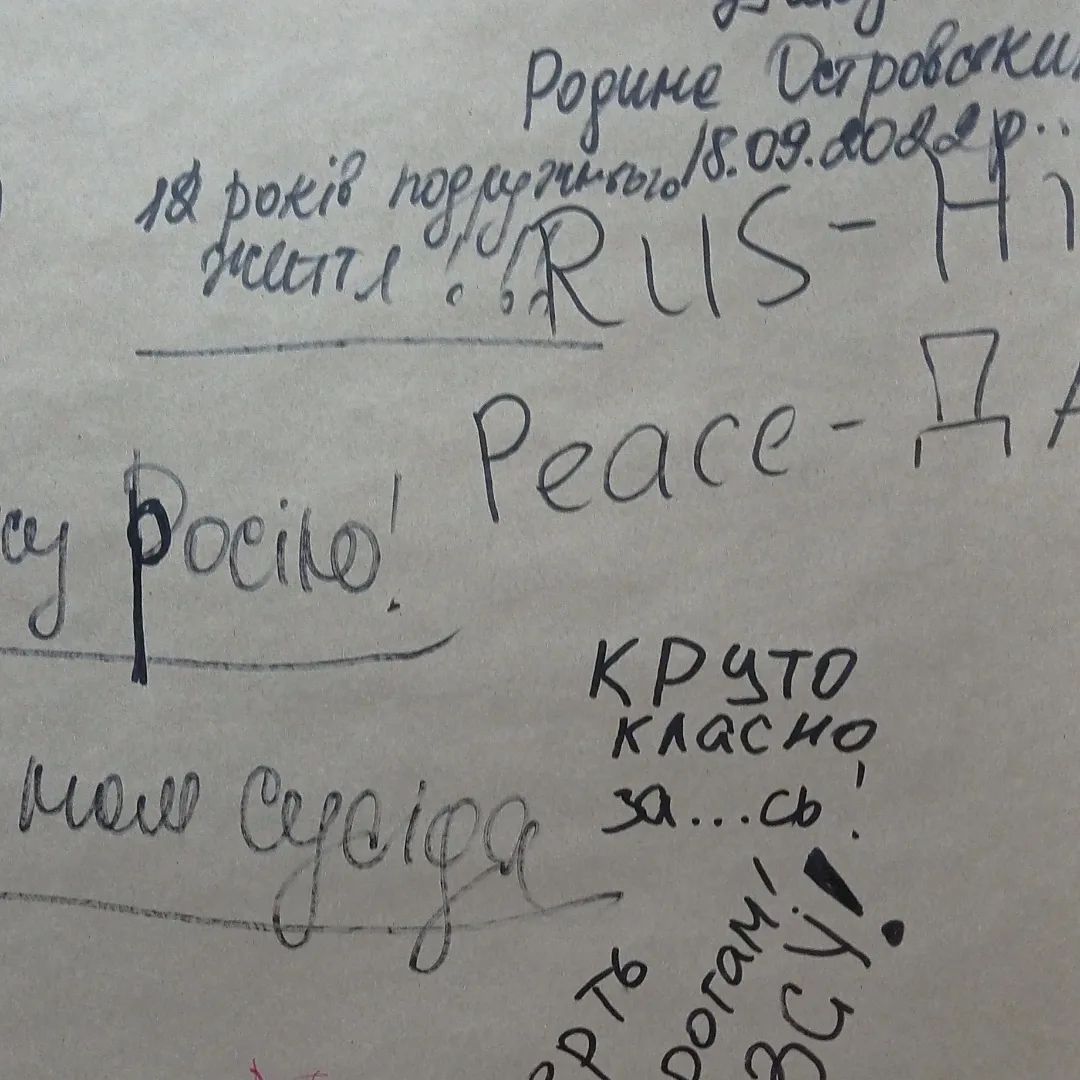 Родине Островских
18.09.2022р..
18 років подружнього
життя !!!
RUS - Ні
Peace - ДА
Росію!
мого сусіда
КРУТО
класно
за...сь!
рогам!
ЗСУ!